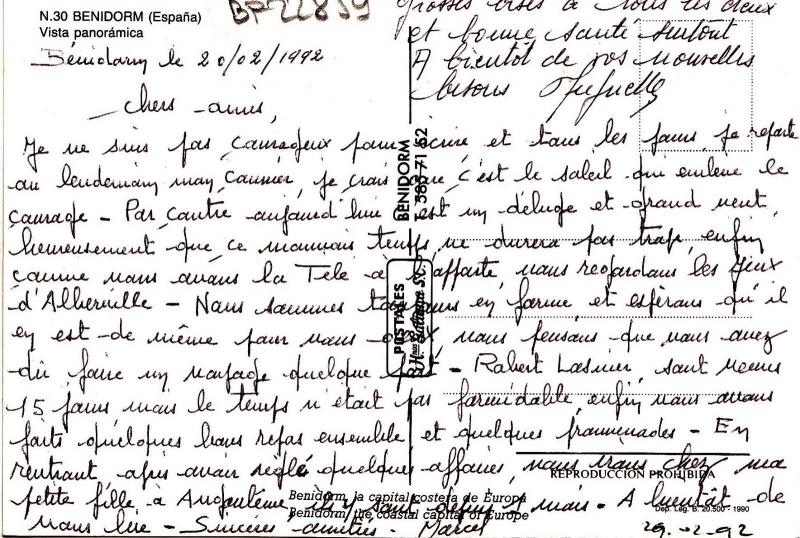 N.30 BENIDORM (España)
Vista panorámica
BF22859
Bénidorm le 20/02/1992
chers amis,
Je ne suis pas courageux pour écrire et tous les jours je reporte
au lendemain mon courrier, je crois que c'est le soleil qui enlève le
courage - Par contre aujourd'hui c'est un déluge et grand vent,
heureusement que ce mauvais temps ne durera pas trop, enfin
comme nous avons la Télé a l'affarté, nous regardons les jeux
d'Alberville - Nous sommes toujours en forme et espérons qu'il
en est de même pour vous deux nous pensons que vous avez
dû faire un voyage quelque part - Robert Lasnier, sont venus
15 jours mais le temps n'était pas formidable, enfin nous avons
faits quelques bons repas ensemble et quelques promenades - En
rentrant, après avoir réglé quelques affaires, nous irons chez ma
petite fille a Angoulême ils y sont depuis 1 mois - A bientôt de
vous lire - Sincères amitiés - Marcel
29-02-92
grosses bises à tous les deux
et bonne santé surtout
A bientôt de vos nouvelles
bisous
BENIDORM
T. 585 71 52
POSTALES
Hnos Galiana S.C.
REPRODUCCIÓN PROHIBIDA
Benidorm, la capital costera de Europa
Benidorm, the coastal capital of Europe
Dep. Leg. B. 20.500 - 1990